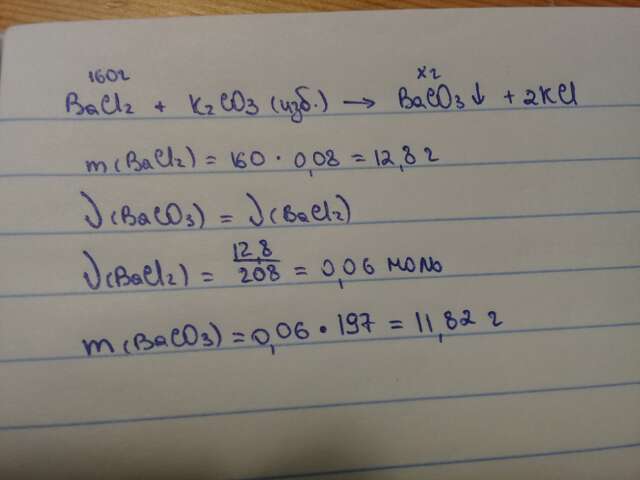 160г xг
BaCl2 + K2CO3 (изб.) → BaCO3↓ + 2KCl
m(BaCl2) = 160 · 0,08 = 12,8 г
ν(BaCO3) = ν(BaCl2)
ν(BaCl2) = 12,8/208 = 0,06 моль
m(BaCO3) = 0,06 · 197 = 11,82 г